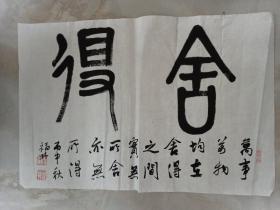 舍得
萬事
萬物
均在
舍得
之間
實無
所舍
亦無
所得
丙申秋